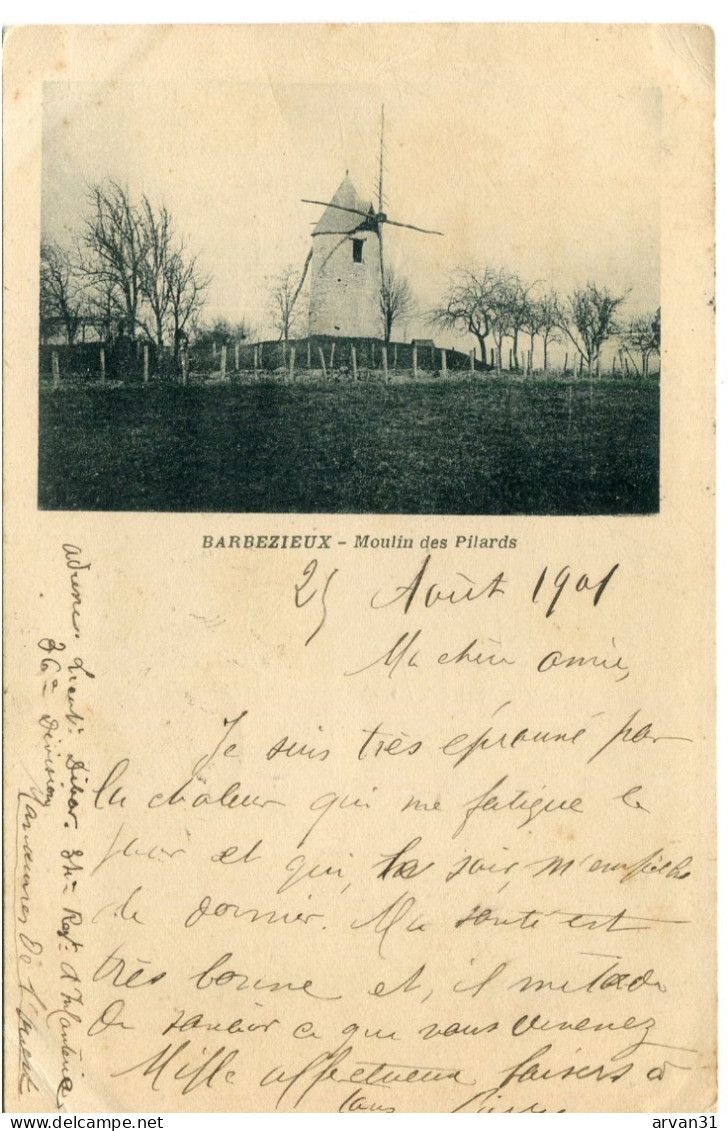 BARBEZIEUX - Moulin des Pilards
25 Août 1901
Ma chère amie,
Je suis très éprouvé par
la chaleur qui me fatigue le
jour et qui, le soir, m'empêche
de dormir. Ma santé est
très bonne et, il me tarde
de savoir ce que vous devenez
Mille affectueux baisers à
tous
adresse. Lieut. 34me Regt. d'Infanterie
36e Division
Manœuvres de l'Ouest
delcampe.net
arvan31